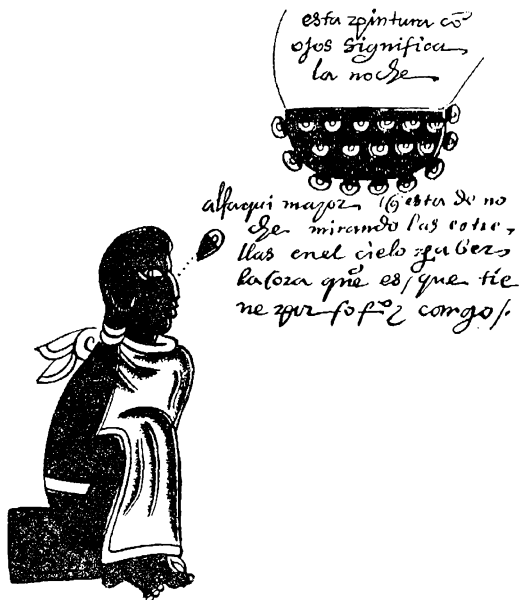 esta pintura cõ
ojos significa
la noche
alfaqui mayor q̃ esta de no
che mirando las estre
llas en el cielo p̱a ber
la ora que es / que tie
ne por sofº y cargo /.